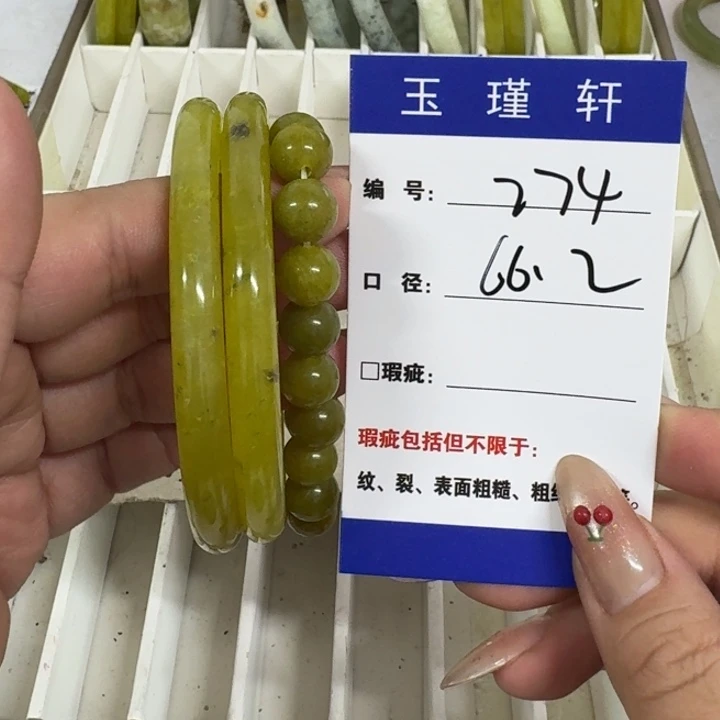 玉瑾轩
编 号: 274
口 径: 66.2
□瑕疵:
瑕疵包括但不限于:
纹、裂、表面粗糙、粗